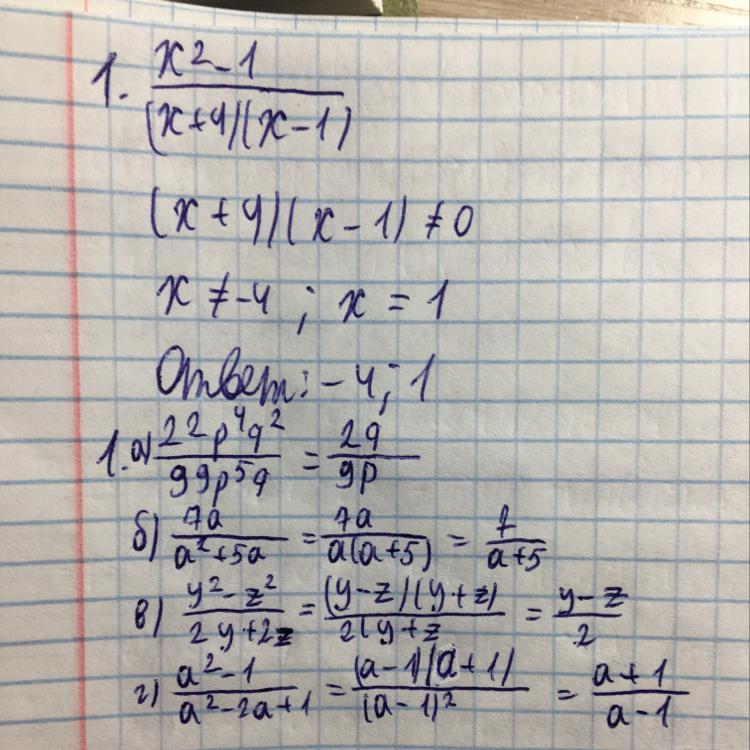 1. x²-1 / (x+4)(x-1)
(x+4)(x-1) ≠ 0
x ≠ -4 ; x = 1
Ответ: -4; 1
1. а) 22p⁴q² / 99p⁵q = 2q / 9p
б) 7a / a²+5a = 7a / a(a+5) = 7 / a+5
в) y²-z² / 2y+2z = (y-z)(y+z) / 2(y+z = y-z / 2
г) a²-1 / a²-2a+1 = (a-1)(a+1) / (a-1)² = a+1 / a-1